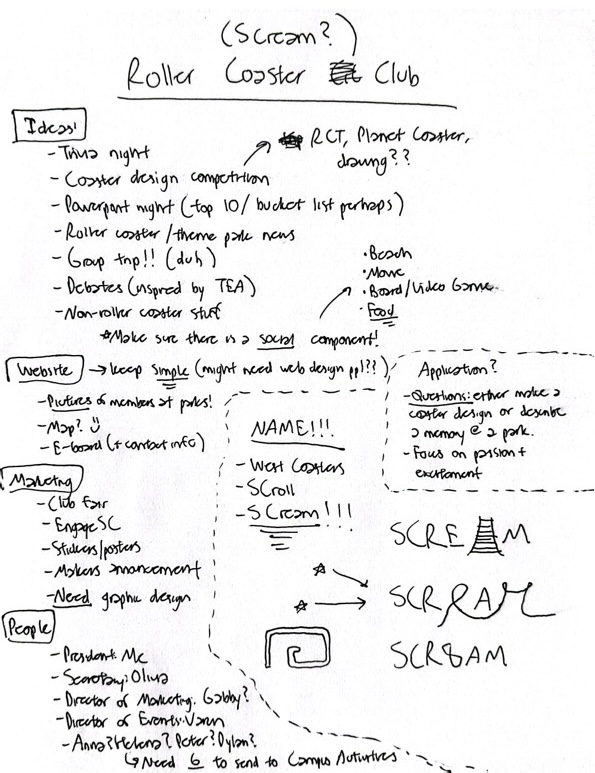 (Scream?)
Roller Coaster Club
Ideas!
- Trivia night
- Coaster design competition
RCT, Planet Coaster,
drawing??
- Powerpoint night (top 10/bucket list perhaps)
- Roller coaster/theme park news
- Group trip!! (duh)
- Debates (inspired by TEA)
- Non-roller coaster stuff
• Beach
• Movie
• Board/Video Game
• Food
*Make sure there is a social component!
Website → keep simple (might need web design ppl??)
- Pictures of members at parks!
- Map? :)
- E-board (+ contact info)
Application?
- Questions: either make a
coaster design or describe
a memory @ a park.
- Focus on passion +
excitement
NAME!!!
- West Coasters
- SCroll
- SCream!!!
SCREAM
SCREAM
SCR8AM
Marketing
- Club Fair
- EngageSC
- Stickers/posters
- Makers announcement
- Need graphic design
People
- President: Me
- Secretary: Olivia
- Director of Marketing: Gabby?
- Director of Events: Varun
- Anna? Helena? Peter? Dylan?
↳ Need 6 to send to Campus Activities